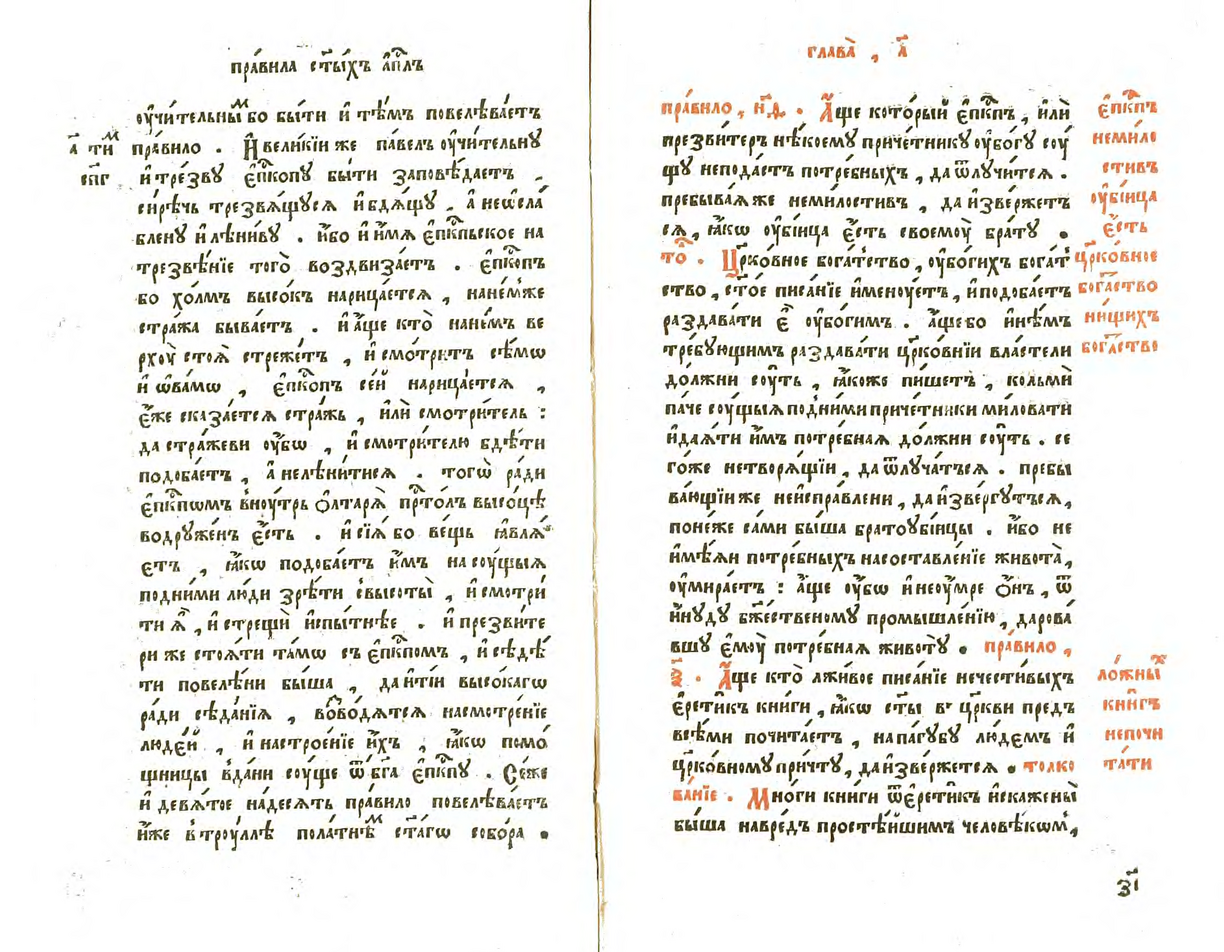 пра́вила ст҃ы́хъ а҆пⷭ҇лъ
ᲂу҆чи́тельныⷨ бо бы́ти и҆ тѣ́мъ повелѣва́етъ
а҃ тиⷨ
пра́вило . И҆ вели́кїи же па́велъ ᲂу҆чи́тельну
є҆пⷭ҇г
и҆ тре́зву є҆пⷭ҇копу бы́ти заповѣ́даетъ ,
си́рѣчь трезвя́щуся и҆ бдя́щу . а҆ не ѡ҆сла́
блену и҆ лѣни́ву . и҆́бо и҆ и҆́мя є҆пⷭ҇кпьское на
трезвѣ́нїе того̀ воздвиза́етъ . є҆пⷭ҇копъ
бо хо́лмъ высо́къ нарица́ется , на не́мже
стра́жа быва́етъ . и҆ а҆́ще кто̀ на не́мъ ве
рхꙋ̀ стоѧ̀ стреже́тъ , и҆ смо́тритъ сѣ́мѡ
и҆ ѡ҆ва́мѡ , є҆пⷭ҇копъ се́й нарица́ется ,
є҆́же сказа́ется стра́жь , и҆лѝ смотри́тель :
да стра́жеви ᲂу҆́бѡ , и҆ смотри́телю бдѣ́ти
подоба́етъ , а҆ не лѣни́тися . тогѡ̀ ра́ди
є҆пⷭ҇кпѡмъ внꙋ́трь ѻ҆лтаря̀ прⷭ҇то́лъ высо́цѣ
водруже́нъ є҆́сть . и҆ сїя́ бо ве́щь ꙗ҆вля́
етъ , ꙗ҆́кѡ подоба́етъ и҆́мъ на сꙋ́щыя
под ни́ми лю́ди зрѣ́ти с высоты̀ , и҆ смотри́
ти ѧ҆̀ , и҆ стрещѝ и҆спы́тнѣе . и҆ презви́те
ри же стоя́ти та́мѡ съ є҆пⷭ҇кпомъ , и҆ сѣдѣ́
ти повелѣ́ни бы́ша , да и҆ ті́и высо́кагѡ
ра́ди сѣда́нїя , во́ѡводятся на смотре́нїе
люде́й , и҆ на строе́нїе и҆́хъ , ꙗ҆́кѡ помо́
щницы вда́ни сꙋ́ще ѿ бг҃а є҆пⷭ҇кпу . Се́же
и҆ девя́тое на́десять пра́вило повелѣва́етъ
и҆́же в трꙋ́ллѣ пола́тнѣⷨ ст҃а́гѡ собо́ра .
глава̀ , а҃
пра́вило , н҃д . А҆́ще кото́рый є҆пⷭ҇кпъ , и҆лѝ
презви́теръ нѣ́коему приче́тнику ᲂу҆бо́гу сꙋ́
щу не пода́стъ потре́бныхъ , да ѿлучи́тся .
пребыва́яже неми́лостивъ , да и҆зве́ржетъ
ся , ꙗ҆́кѡ ᲂу҆бі́ица є҆́сть своемꙋ̀ бра́ту .
то́ⷧ . Цр҃ко́вное бога́тство , ᲂу҆бо́гихъ бога́т
ство , ст҃о́е писа́нїе и҆менꙋ́етъ , и҆ подоба́етъ
раздава́ти є҆̀ ᲂу҆бо́гимъ . а҆́ще бо и҆нѣ́мъ
тре́бующимъ раздава́ти цр҃ко́внїи власте́ли
до́лжни сꙋ́ть , ꙗ҆́коже пи́шетъ , кольмѝ
па́че сꙋ́щыя под ни́ми приче́тники ми́ловати
и҆ дая́ти и҆̀мъ потре́бная до́лжни сꙋ́ть . се
го́же не творя́щїи , да ѿлуча́тъся . пребы
ва́ющїи же неи҆спра́влени , да и҆зве́ргутъся ,
поне́же са́ми бы́ша братоᲂубі́ицы . и҆́бо не
и҆мѣ́яи потре́бныхъ на составле́нїе живота̀ ,
ᲂу҆мира́етъ : а҆́ще ᲂу҆́бѡ и҆ не ᲂу҆́мре ѻ҆́нъ , ѿ
и҆ну́ду бж҃е́ственому промышле́нїю , дарова́
вшу є҆мꙋ̀ потре́бная животꙋ̀ . пра́вило ,
ѯ҃ . А҆́ще кто̀ лжи́вое писа́нїе нечести́выхъ
є҆рети́къ кни́ги , ꙗ҆́кѡ ст҃ы в цр҃кви пре́дъ
всѣ́ми почита́етъ , на па́губу лю́демъ и҆
цр҃ко́вному при́чту , да и҆зве́ржется . толко
ва́нїе . Мно́ги кни́ги ѿ є҆рети́къ и҆скажены̀
бы́ша на вре́дъ просте́йшимъ человѣ́кѡмъ ,
є҆пⷭ҇кпъ
неми́ло
стивъ
ᲂу҆бі́ица
є҆́сть
цр҃ко́вное
бога́ство
ни́щихъ
бога́ство
ло́жныⷯ
кни́гъ
не почи
та́ти
з҃і